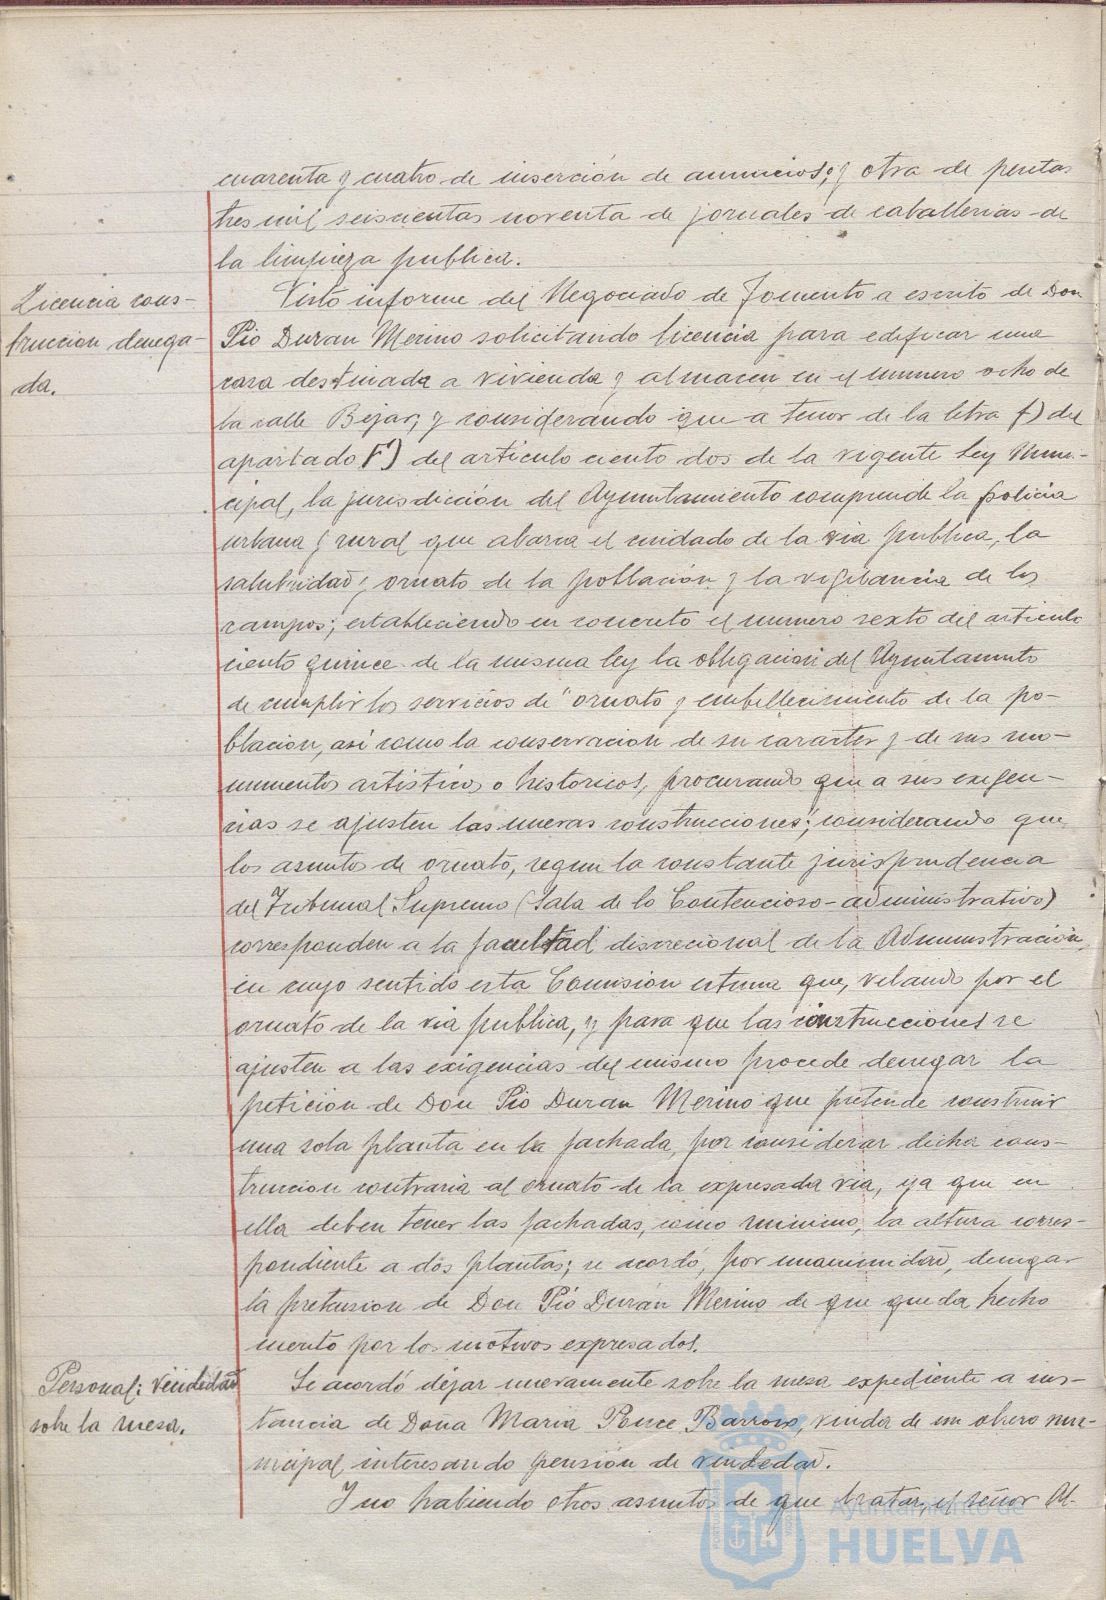 cuarenta y cuatro de inserción de anuncios; y otra de pesetas
tres mil seiscientas noventa de jornales de caballerias de
la limpieza publica.
Licencia cons-
truccion denega-
da.
Visto informe del Negociado de Fomento a escrito de Don
Pio Duran Merino solicitando licencia para edificar una
casa destinada a vivienda y almacen en el numero ocho de
la calle Bejar; y considerando que a tenor de la letra f) del
apartado F) del articulo ciento dos de la vigente Ley Muni-
cipal, la jurisdicción del Ayuntamiento comprende la policia
urbana y rural que abarca el cuidado de la via publica, la
salubridad y ornato de la población y la vigilancia de los
campos; estableciendo en concreto el numero sexto del articulo
ciento quince de la misma ley la obligación del Ayuntamiento
de cumplir los servicios de "ornato y embellecimiento de la po-
blación, asi como la conservación de su caracter y de sus mo-
numentos artisticos o historicos, procurando que a sus exigen-
cias se ajusten las nuevas construcciones"; considerando que
los asuntos de ornato, segun la constante jurisprudencia
del Tribunal Supremo (Sala de lo Contencioso-administrativo)
corresponden a la facultad discrecional de la Administración,
en cuyo sentido esta Comision estima que, velando por el
ornato de la via publica, y para que las construcciones se
ajusten a las exigencias del mismo procede denegar la
peticion de Don Pio Duran Merino que pretende construir
una sola planta en la fachada, por considerar dicha cons-
truccion contraria al ornato de la expresada via, ya que en
ella deben tener las fachadas, como minimo, la altura corres-
pondiente a dos plantas; se acordó, por unanimidad, denegar
la pretension de Don Pio Durán Merino de que queda hecho
merito por los motivos expresados.
Personal: viudedad
sobre la mesa.
Se acordó dejar nuevamente sobre la mesa expediente a ins-
tancia de Dona Maria Ponce Barroso, viuda de un obrero mu-
nicipal interesando pensión de viudedad.
Y no habiendo otros asuntos de que tratar, el señor Al-
Ayuntamiento de
HUELVA